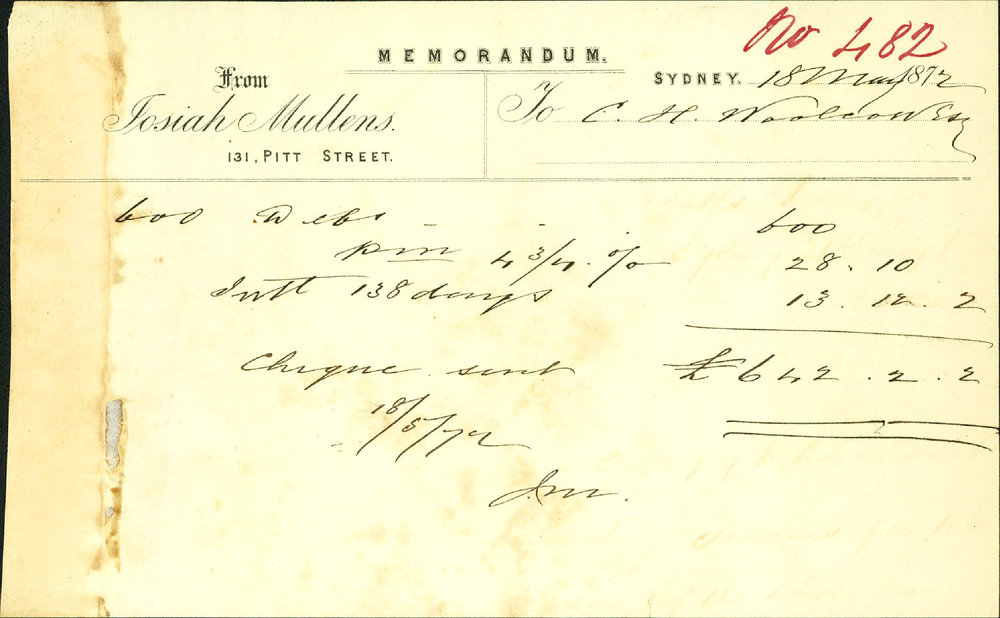 No 482
MEMORANDUM.
From
Josiah Mullens.
131, PITT STREET.
SYDNEY, 18 May 1872
To C. H. Woolcott Esq
600 Debs - - 600
Prm 4 3/4 % 28 . 10
Intt 138 days 13 . 12 . 2
Cheque sent £642 . 2 . 2
18/5/72
J.M.